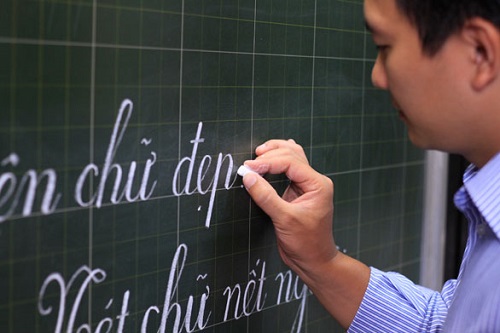 ện chữ đẹp
Nét chữ nết ng